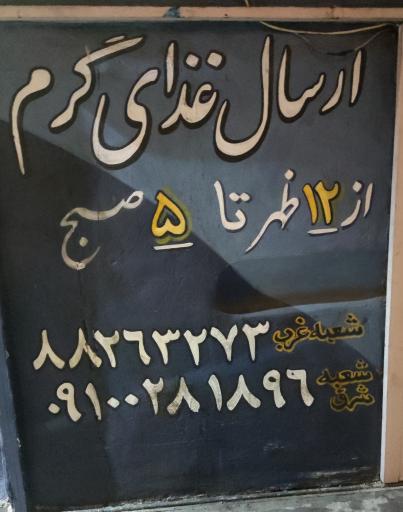 ارسال غذای گرم
از ۱۲ ظهر تا ۵ صبح
شعبه غرب ۸۸۲۶۳۲۷۳
شعبه شرق ۰۹۱۰۰۲۸۱۸۹۶